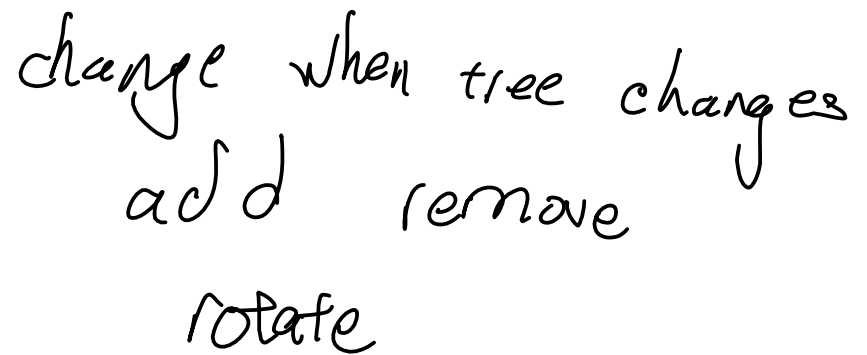 change when tree changes
add remove
rotate